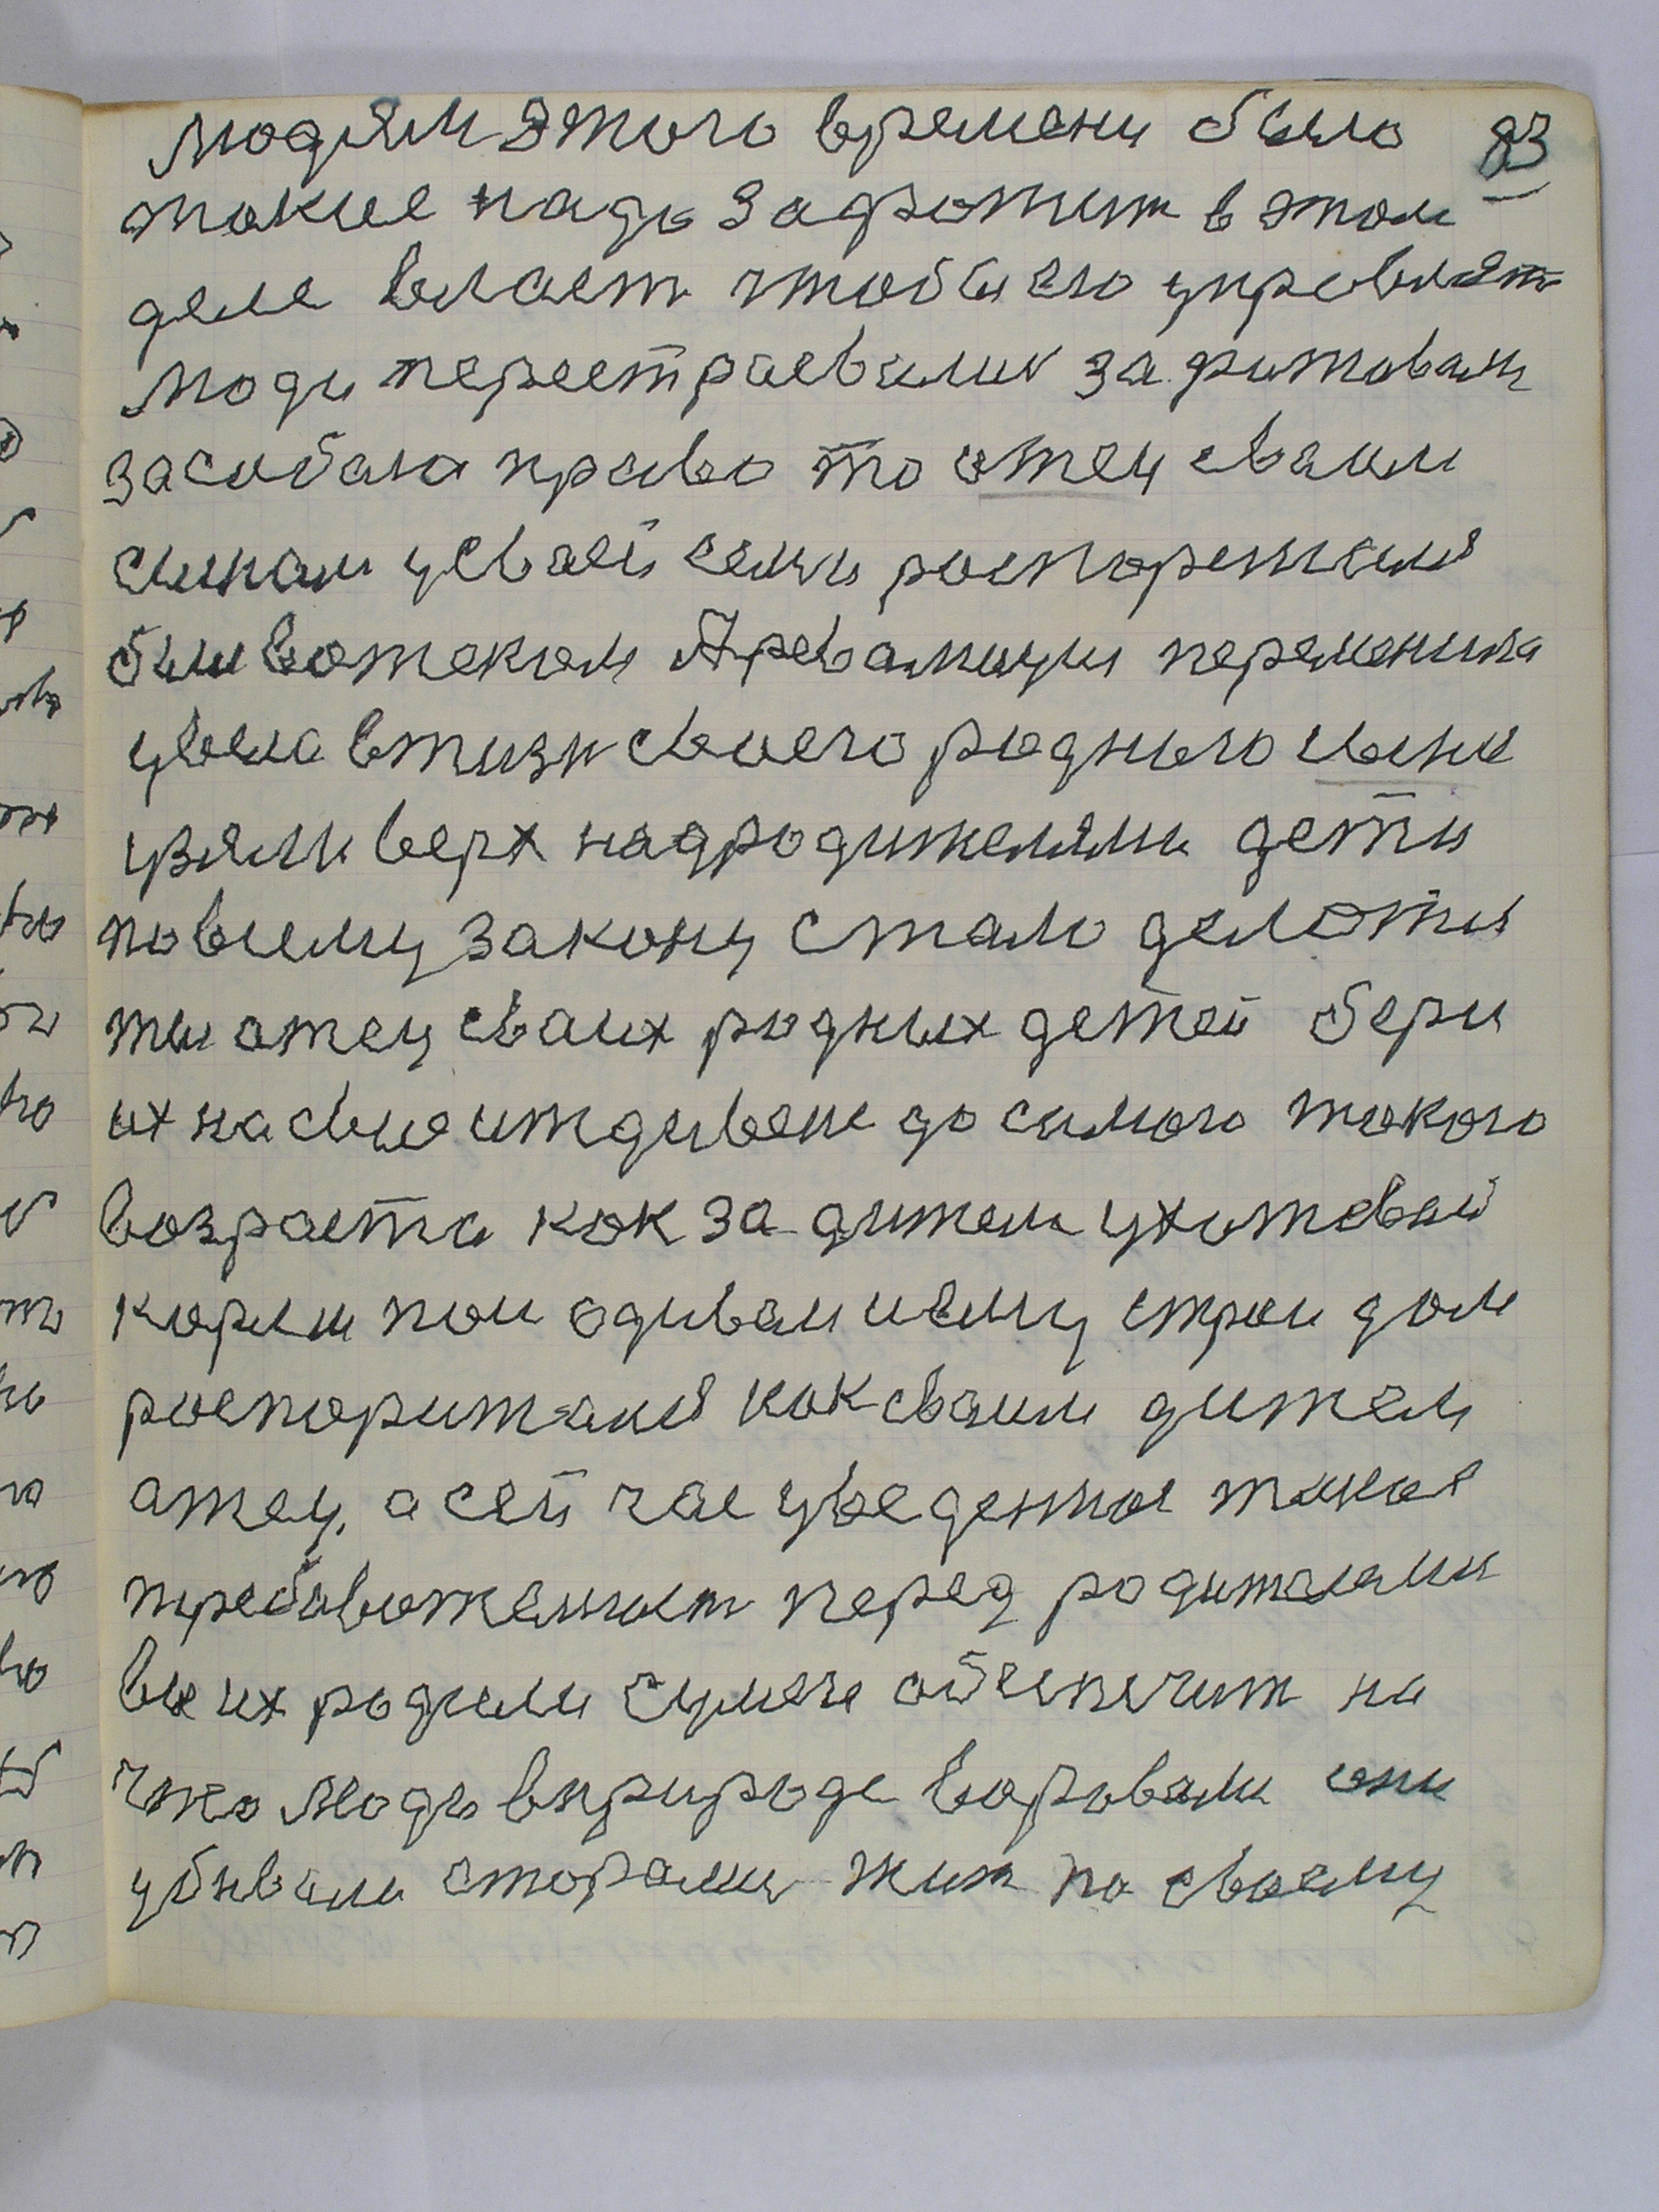 людям этого времени было 83
такие надо захватит в этом
деле власт чтобы его управлят
люди перестраевалис за хватовали
за собою право то отец сваим
сынам у сваей семи распорежалс
быв вотеком А революция переменила
увела в жизн своего родного сына
узяли верх над родителями дети
по всему закону стало делотся
ты отец сваих родных детей бери
их на свое иждивене до самого такого
возраста как за дитем ухажевай
корми пои одивай и ему строи дом
распоритжалс как сваим дитем
отец, а сей час уведенное такое
требивотельност перед родителями
вы их родили сумейе обеспечит на
что люди в природе воровали они
убивали старалис жит по своему